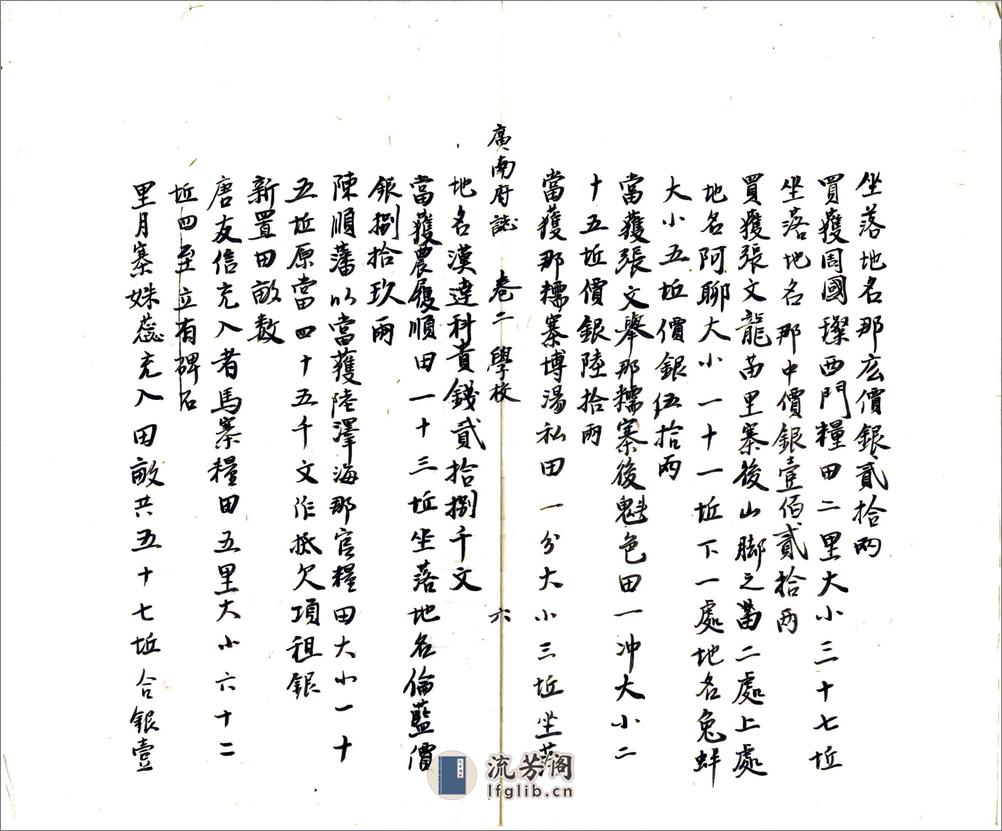 坐落地名那広價銀貳拾兩
買獲周國璨西門糧田二里大小三十七坵
坐落地名那中價銀壹佰貳拾兩
買獲張文龍苗里寨後山脚之畨二處上處
地名阿聊大小一十一坵下一處地名兔蚌
大小五坵價銀伍拾兩
當獲張文舉那糯寨後魁色田一冲大小二
十五坵價銀陸拾兩
當獲那糯寨博湯私田一分大小三坵坐落
廣南府誌 卷二 學校 六
地名漢達科貴錢貳拾捌千文
當獲農履順田一十三坵坐落地名倫藍價
銀捌拾玖兩
陳順藩以當獲陸澤海那官糧田大小一十
五坵原當四十五千文作抵欠項租銀
新置田畝数
唐友信充入者馬寨糧田五里大小六十二
坵四至立有碑石
里月寨姝蕊充入田畝共五十七坵合銀壹
流芳阁
lfglib.cn